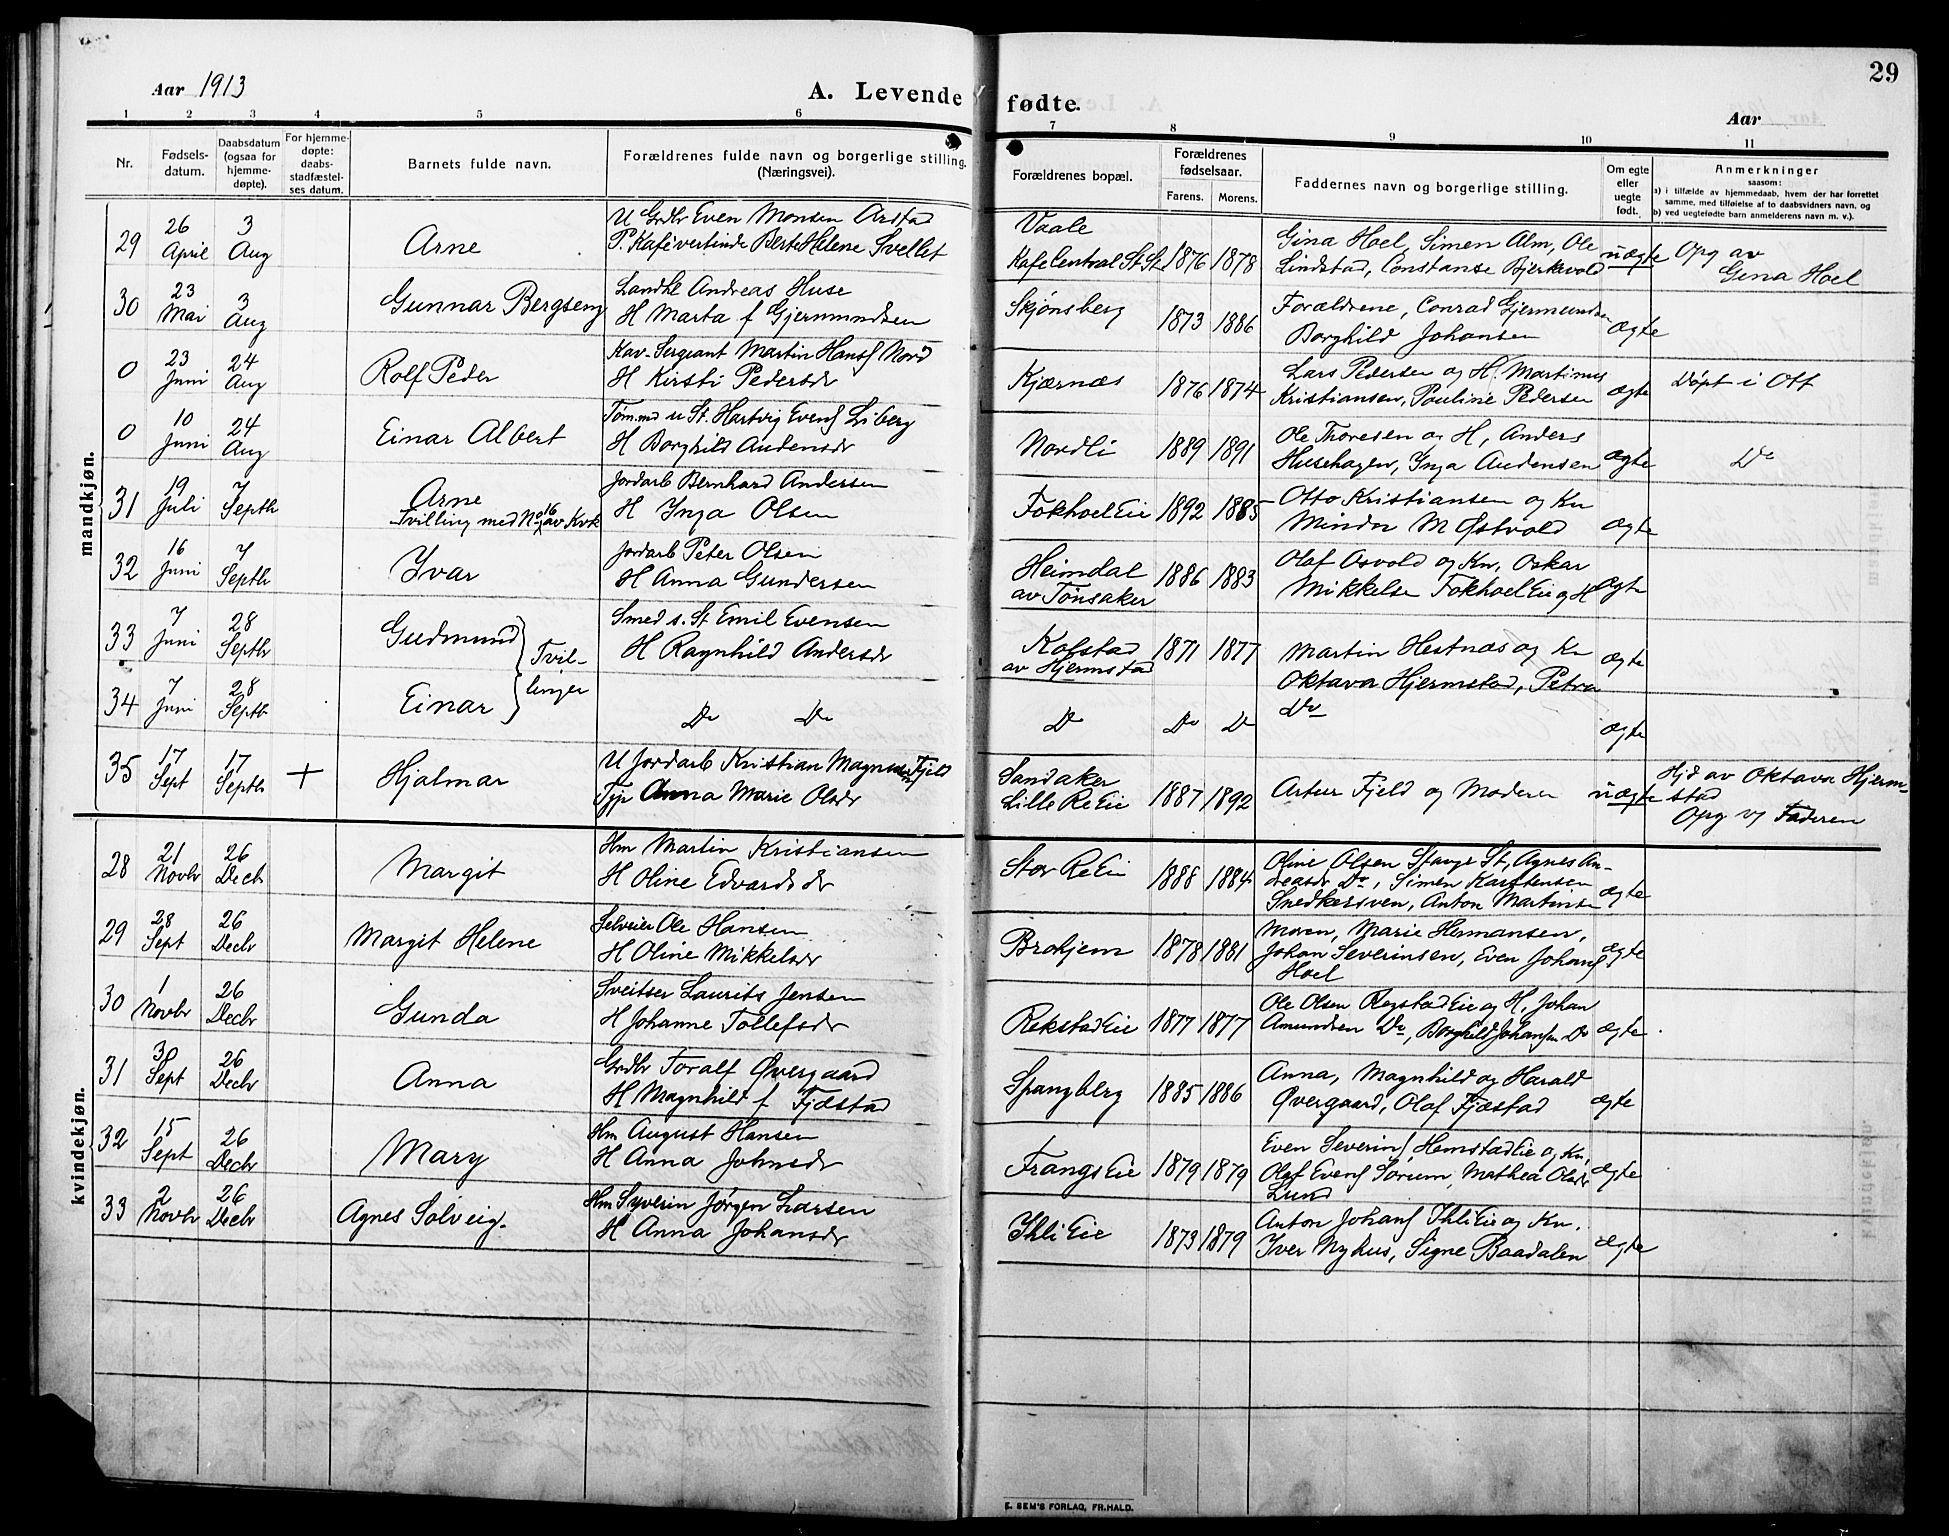 Aar 1913
A. Levende
1 2 3 4 5 6
Nr.
Fødsels-
datum.
Daabsdatum
(ogsaa for
hjemme-
døpte).
For hjemme-
døpte:
daabs-
stadfæstel-
ses datum.
Barnets fulde navn.
Forældrenes fulde navn og borgerlige stilling.
(Næringsvei).
mandkjøn.
29 26 April 3 Aug Arne
U Grdbr Even Monsen Arstad
P. Kafévertinde Berte Helene Svellet
30 23 Mai 3 Aug Gunnar Bergseng
Landhl Andreas Huse
H Marta f Gjermundsen
0 23 Juni 24 Aug Rolf Peder
Kav-Sergeant Martin Hansf Nord
H Kirsti Pedersdr
0 10 Juni 24 Aug Einar Albert
Tømmd u St. Hartvig Evenf Liberg
H Borghild Audensdr
31 19 Juli 7 Septb Arne
Tvilling med No 16 av Kvk
Jordarb Bernhard Andersen
H Inga Olsen
32 16 Juni 7 Septbr Yvar
Jordarb Peter Olsen
H Anna Gundersen
33 7 Juni 28 Septbr Gudmund
Tvil-
linger
Smed s. St Emil Evensen
H Ragnhild Andersdr
34 7 Juni 28 Septb Einar
Do Do
35 17 Sept 17 Septbr + Hjalmar
U Jordarb Kristian Magnussen Fjeld
Tjp Anna Marie Olsdr
kvindekjøn.
28 21 Novbr 26 Decbr Margit
Hm Martin Kristiansen
H Oline Edvardsdr
29 28 Sept 26 Decbr Margit Helene
Selveier Ole Hansen
H Oline Mikkelsdr
30 1 Novbr 26 Decbr Gunda
Sveitser Laurits Jensen
H Johanne Tollefsdr
31 3 Sept 26 Decbr Anna
Grdbr Toralf Øvergaard
H Magnhild f Fjæstad
32 15 Sept 26 Decbr Mary
Hm August Hansen
H Anna Johnsdr
33 2 Novbr 26 Decbr Agnes Solveig.
Hm Syverin Jørgen Larsen
H Anna Johansdr
29
fødte.
Aar
7 8 9 10 11
Forældrenes bopæl.
Forældrenes
fødselsaar.
Farens. Morens.
Faddernes navn og borgerlige stilling.
Om egte
eller
uegte
født.
Anmerkninger
saasom:
a) i tilfælde av hjemmedaab, hvem der har forrettet
samme, med tilføielse af to daabsvidners navn, og
b) ved uegtefødte barn anmelderens navn m. v.).
Vaale
Kafe Central St St 1876 1878
Gina Hoel, Simen Alm, Ole
Lindstad, Constanse Bjerkevold
uægte
Opg av
Gina Hoel
Skjønsberg 1873 1886
Forældrene, Conrad Gjermundsen
Borghild Johansen
ægte
Kjærnæs 1876 1874
Lars Pedersen og H. Martinus
Kristiansen, Pauline Pedersen
ægte
Døpt i Ott
Nordli 1889 1891
Ole Thoresen og H, Anders
Husehagen, Inga Audensen
ægte
Do
Fokhol Eie 1892 1885
Otto Kristiansen og Kn
Minda M Østvold
ægte
Heimdal
av Tønsaker 1886 1883
Olaf Osvold og Kn, Oskar
Mikkelse Fokhol Eie og H
ægte
Kofstad
av Hjermstad 1871 1877
Martin Hestnæs og Kn
Oktava Hjermstad, Petra
Do
ægte
Do Do Do
ægte
Sandaker
Lille Re Eie 1887 1892
Artur Fjeld og Moderen
uægte
Hjd av Oktava Hjerm-
stad
Opg v/ Faderen
Stor Re Eie 1888 1884
Oline Olsen Stange St, Agnes An-
dreasdr Do, Simen Karstensen
Snedkersven, Anton Martinse
ægte
Brohjem 1878 1881
Moren, Marie Hermansen,
Johan Severinsen, Even Johansf
Hoel
ægte
Rekstad Eie 1877 1877
Ole Olsen Rogstad Eie og H, Johan
Amundsen Do, Borghild Johansen Do
ægte
Spangberg 1885 1886
Anna, Magnhild og Harald
Øvergaard, Olaf Fjæstad
ægte
Frangs Eie 1879 1879
Even Severinf Hemstad Eie og Kn,
Olaf Evenf Sorum, Mathea Olsdr
Lund
ægte
Ihli Eie 1873 1879
Anton Johanf Ihli Eie og Kn.
Iver Nyhus, Signe Baadalen
ægte
E. SEM'S FORLAG, FR.HALD.